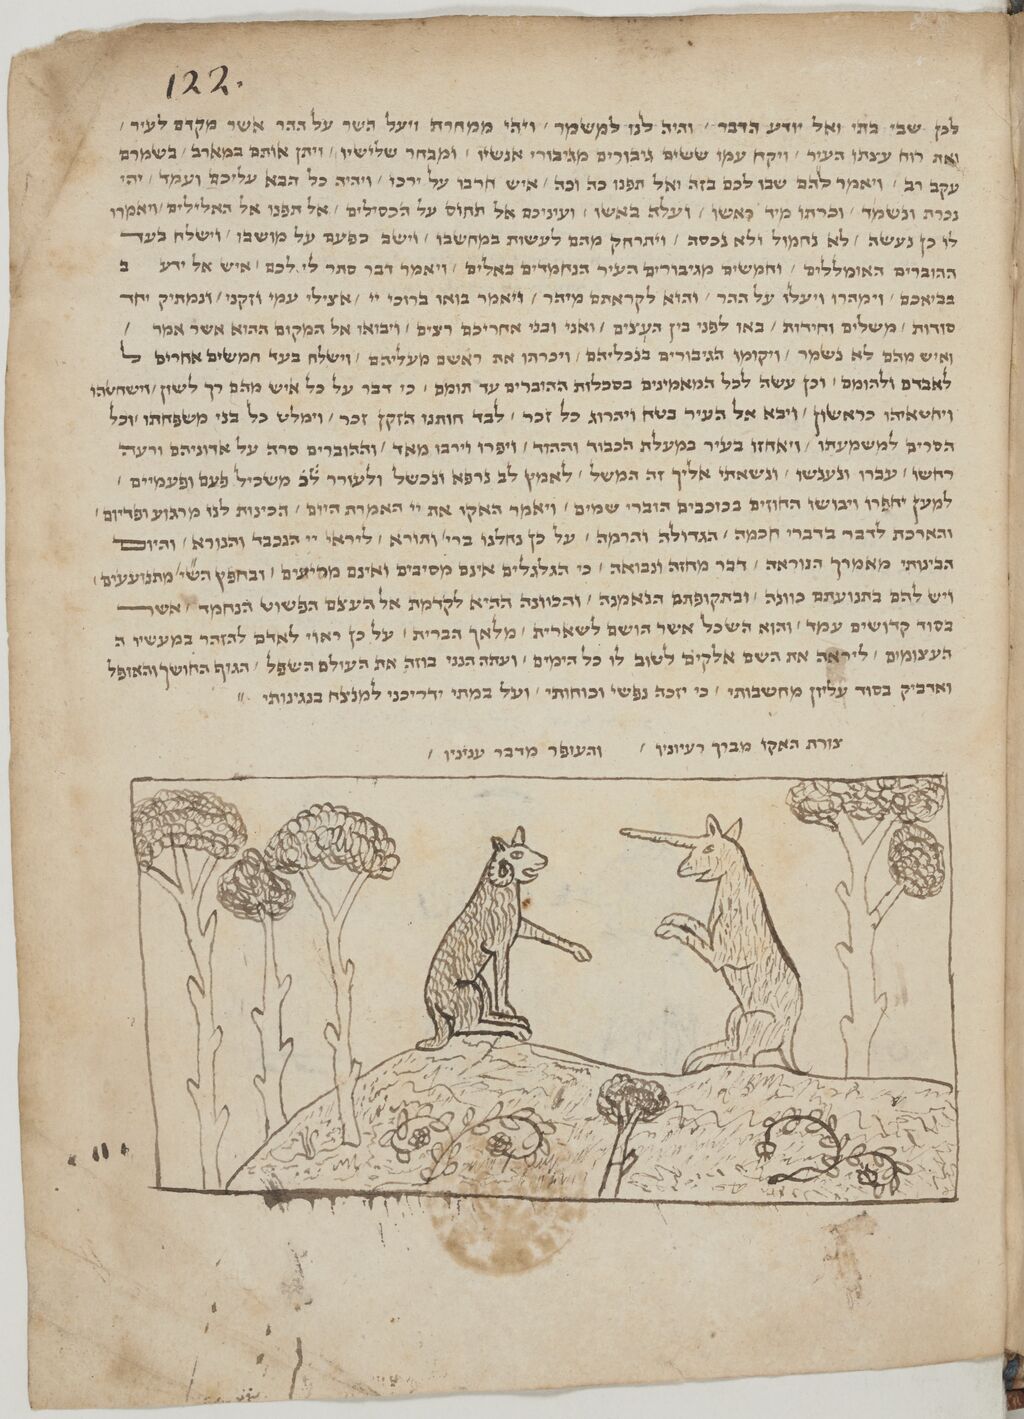 122.
לכן שבי בתי ואל יודע הדבר / והיה לנו למשמר / ויהי ממחרת ויעל השר על ההר אשר מקדם לעיר /
ואת רוח עצתו העיר / ויקח עמו ששים גיבורים מגיבורי אנשיו / ומבחר שלישיו / ויתן אותם במארב / בשמרם
עקב רב / ויאמר להם שבו לכם בזה ואל תפנו כה וכה / איש חרבו על ירכו / ויהיה כל הבא עליכם ועמד / יהי
נכרת ונשמד / וכרתו מיד ראשו / ועלה באשו / ועיניכם אל תחוס על הכסילים / אל תפנו אל האלילים / ויאמרו
לו כן נעשה / לא נחמול ולא נכסה / ויתרחק מהם לעשות במחשבו / וישב כפעם על מושבו / וישלח בעד
ההוברים האומללים / וחמשים מגיבורים העיר הנחמדים באלים / ויאמר דבר סתר לי לכם / איש אל ידע ב
בביאכם / וימהרו ויעלו על ההר / והוא לקראתם מיהר / ויאמר בואו ברוכי יי / אצילי עמי וזקני / ונמתיק יחד
סודות / משלים וחידות / באו לפני בין העצים / ואני ובני אחריכם רצים / ויבואו אל המקום ההוא אשר אמר /
ואיש מהם לא נשמר / ויקומו הגיבורים בנכליהם / ויכרתו את ראשם מעליהם / וישלח בעד חמשים אחרים ל
לאבדם ולהומם / וכן עשה לכל המאמינים בסכלות ההוברים עד תומם / כי דבר על כל איש מהם רך לשון / וישחטהו
ויחטאיהו כראשון / ויבא אל העיר בטח ויהרוג כל זכר / לבד חותנו הזקן זכר / וימלט כל בני משפחתו / וכל
הסרים למשמעתו / ויאחזו בעיר במעלת הכבוד וההוד / ויפרו וירבו מאד / וההוברים סרה על אדוניהם ורעה
רחשו / עברו ונענשו / ונשאתי אליך זה המשל / לאמץ לב נרפא ונכשל ולעורר לב משכיל פעם ופעמיים /
למען יחפרו ויבושו החוזים בכוכבים הוברי שמים / ויאמר האקו את יי האמרת היום / הכינות לנו מרגוע ופדיום /
והארכת לדבר בדברי חכמה / הגדולה והרמה / על כן נחלנו ברי' ותורא / ליראי יי הנכבד והנורא / והיום
הבינותי מאמרך הנוראה / דבר מחזה ונבואה / כי הגלגלים אינם מסיבים ואינם מריעים / ובחפץ השי' מתנועעים /
ויש להם בתנועתם כוונה / ובתקופתם הנאמנה / והכוונה ההיא לקדמת אל העצם הפשוט הנחמד / אשר
בסוד קדושים עמד / והוא השכל אשר הושם לשארית / מלאך הברית / על כן ראוי לאדם להזהר במעשיו ה
העצומים / ליראה את השם אלקים לטוב לו כל הימים / ועתה הנני בוזה את העולם השפל / הגוף החושך והאופל
ואדביק בסוד עליון מחשבותי / כי יזכה נפשי וכוחותי / ועל במתי ידריכני למנצח בנגינותי
צורת האקו מברך רעיוניו / והעופר מדבר עניניו /